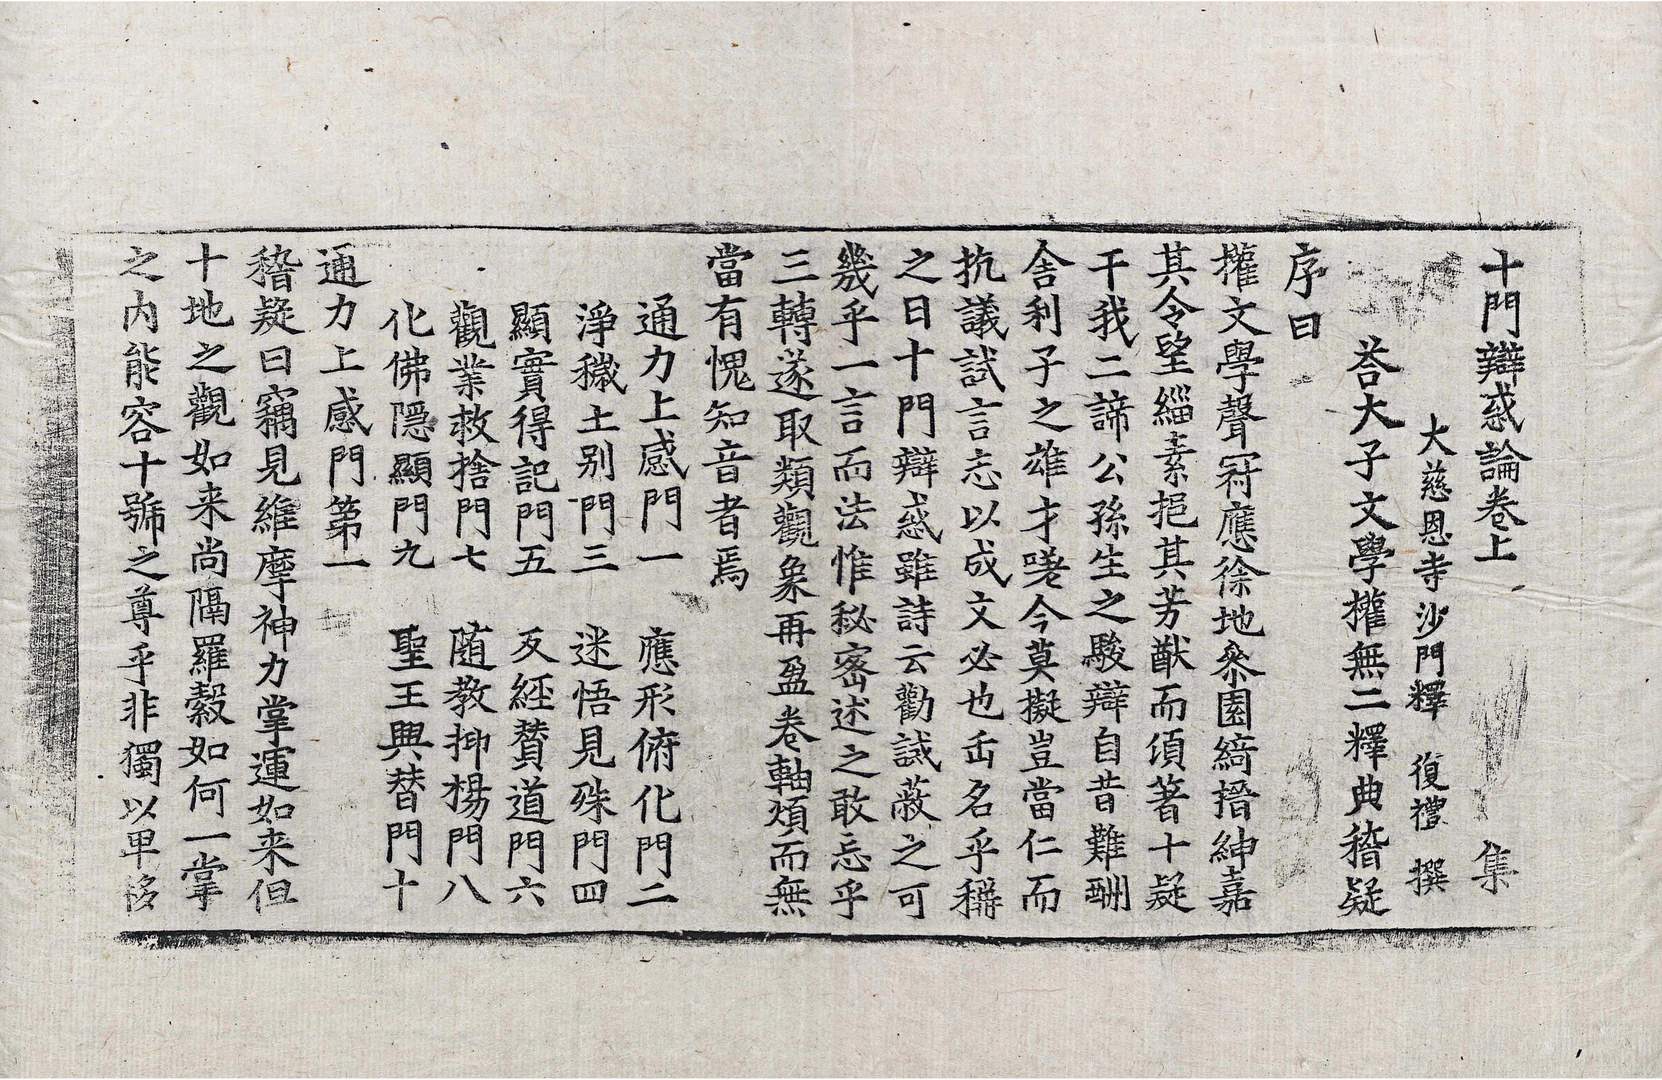 十門辯惑論卷上　集
大慈恩寺沙門釋　復禮　撰
荅大子文學權無二釋典稽疑
序曰
權文學聲冠應徐地叅園綺搢紳嘉
其令望緇素挹其芳猷而湏著十疑
干我二諦公孫生之駿辯自昔難酬
舍利子之雄才嗟今莫擬豈當仁而
抗議試言忘以成文必也岳名乎稱
之日十門辯惑雖詩云勸誡蔽之可
幾乎一言而法惟秘宻述之敢忘乎
三轉遂取類觀象再盈卷軸煩而無
當有愧知音者焉
通力上感門一　應形俯化門二
淨穢土别門三　迷悟見殊門四
顯實得記門五　反經贊道門六
觀業救捨門七　随教抑揚門八
化佛隱顯門九　聖王興替門十
通力上感門第一
稽疑曰竊見維摩神力掌運如来但
十地之觀如来尚隔羅縠如何一掌
之内能容十號之尊乎非獨以卑移